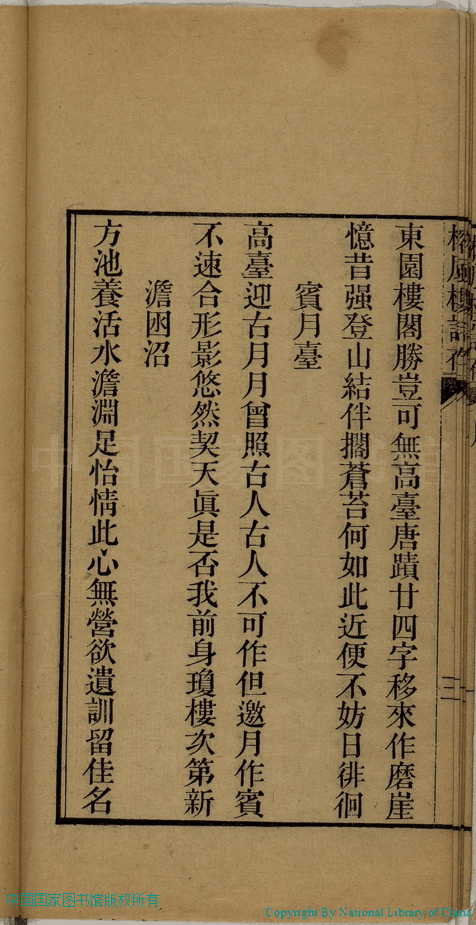 東園樓閣勝豈可無高臺唐蹟廿四字移來作磨崖
憶昔强登山結伴摑蒼苔何如此近便不妨日徘徊
賓月臺
高臺迎古月月曾照古人古人不可作但邀月作賓
不速合形影悠然契天眞是否我前身瓊樓次第新
澹囦沼
方池養活水澹淵足怡情此心無營欲遺訓留佳名
中国国家图书馆版权所有
Copyright By National Library of China